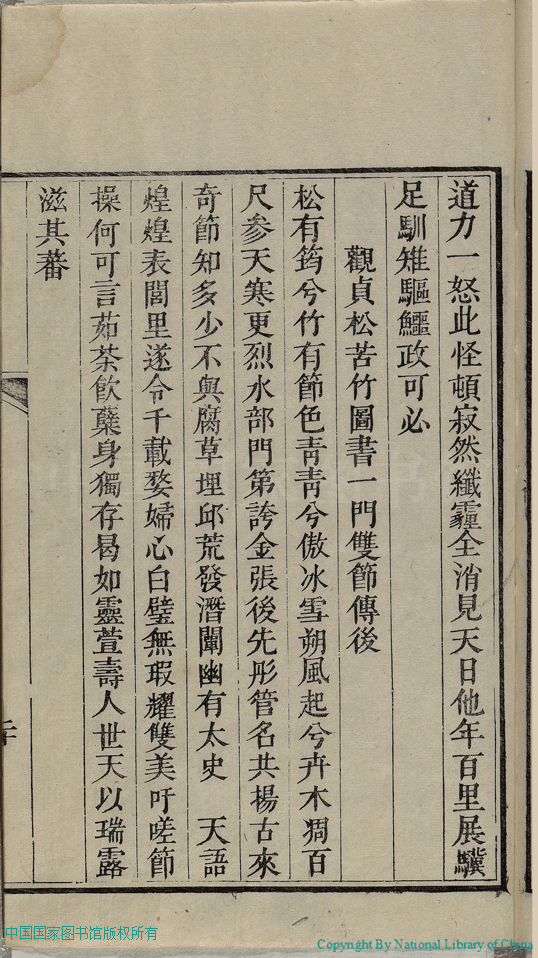 道力一怒此怪頓寂然纖霾全消見天日他年百里展驥
足馴雉驅鱷政可必
觀貞松苦竹圖書一門雙節傳後
松有筠兮竹有節色靑靑兮傲冰雪朔風起兮卉木凋百
尺參天寒更烈水部門第誇金張後先彤管名共揚古來
奇節知多少不與腐草埋邱荒發潛闡幽有太史　天語
煌煌表閭里遂令千載婺婦心白璧無瑕耀雙美吁嗟節
操何可言茹荼飮蘖身獨存曷如靈萱壽人世天以瑞露
滋其蕃
中国国家图书馆版权所有
Copyright By National Library of China